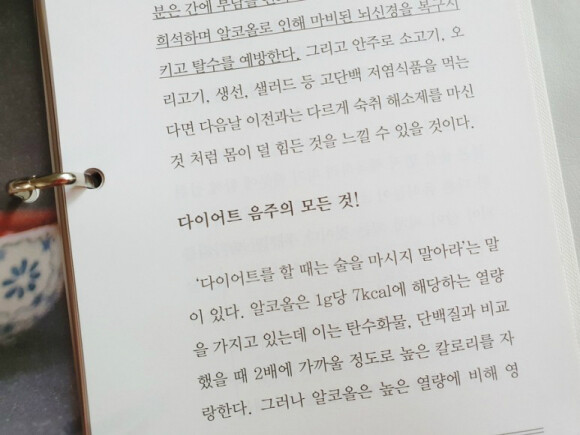 분은 간에 부담을
희석하며 알코올로 인해 마비된 뇌신경을 복구시
키고 탈수를 예방한다. 그리고 안주로 소고기, 오
리고기, 생선, 샐러드 등 고단백 저염식품을 먹는
다면 다음날 이전과는 다르게 숙취 해소제를 마신
것 처럼 몸이 덜 힘든 것을 느낄 수 있을 것이다.
다이어트 음주의 모든 것!
‘다이어트를 할 때는 술을 마시지 말아라’는 말
이 있다. 알코올은 1g당 7kcal에 해당하는 열량
을 가지고 있는데 이는 탄수화물, 단백질과 비교
했을 때 2배에 가까울 정도로 높은 칼로리를 자
랑한다. 그러나 알코올은 높은 열량에 비해 영